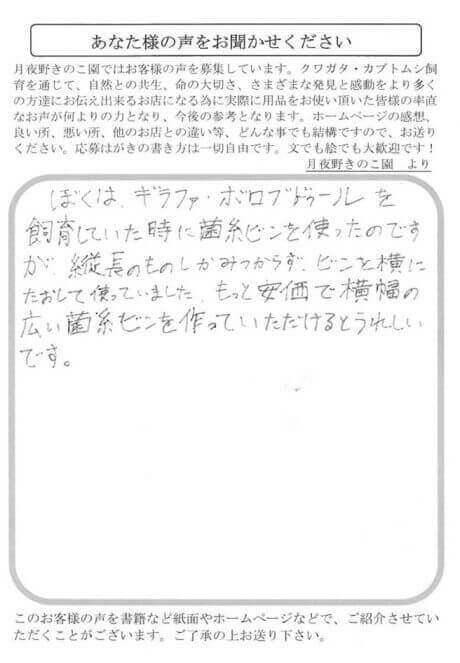 あなた様の声をお聞かせください
月夜野きのこ園ではお客様の声を募集しています。クワガタ・カブトムシ飼
育を通じて、自然との共生、命の大切さ、さまざまな発見と感動をより多く
の方達にお伝え出来るお店になる為に実際に用品をお使い頂いた皆様の率直
なお声が何よりの力となり、今後の参考となります。ホームページの感想、
良い所、悪い所、他のお店との違い等、どんな事でも結構ですので、お送り
ください。応募はがきの書き方は一切自由です。文でも絵でも大歓迎です！
月夜野きのこ園 より
ぼくは、ギラファ・ボロブドゥールを
飼育していた時に菌糸ビンを使ったのです
が、縦長のものしかみつからず、ビンを横に
たおして使っていました。もっと安価で横幅の
広い菌糸ビンを作っていただけるとうれしい
です。
このお客様の声を書籍など紙面やホームページなどで、ご紹介させてい
ただくことがございます。ご了承の上お送り下さい。